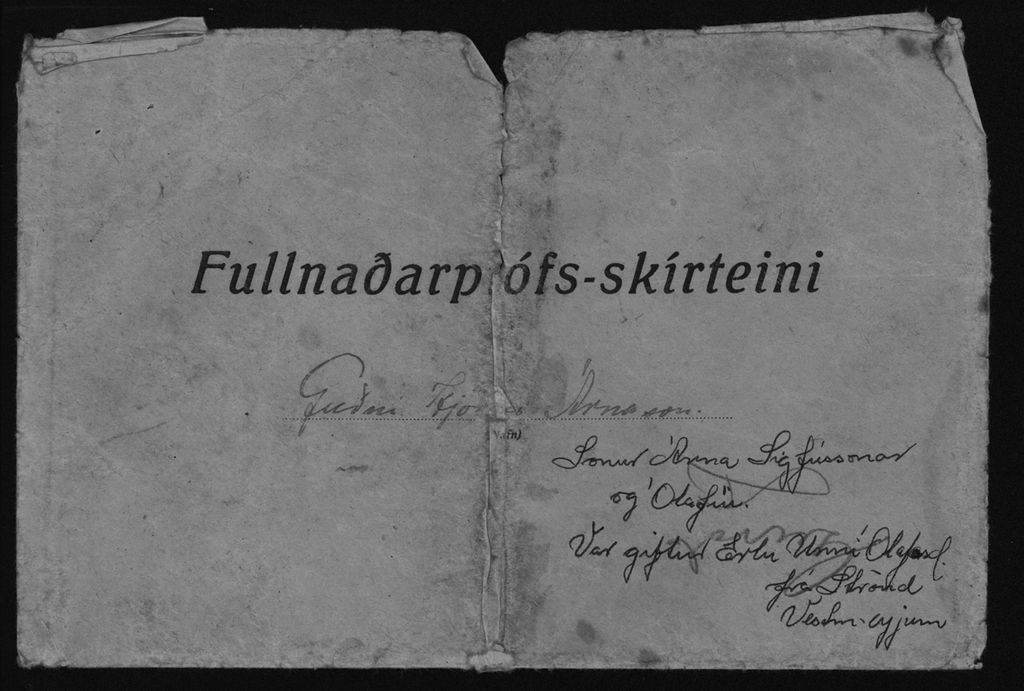 Fullnaðarp ófs-skírteini
Guðni Hjo Árnason.
Sonur Árna Sigfússonar
og Ólafíu.
Var giftur Erlu Unni Ólafsd.
frá Strönd
Vestm-eyjum